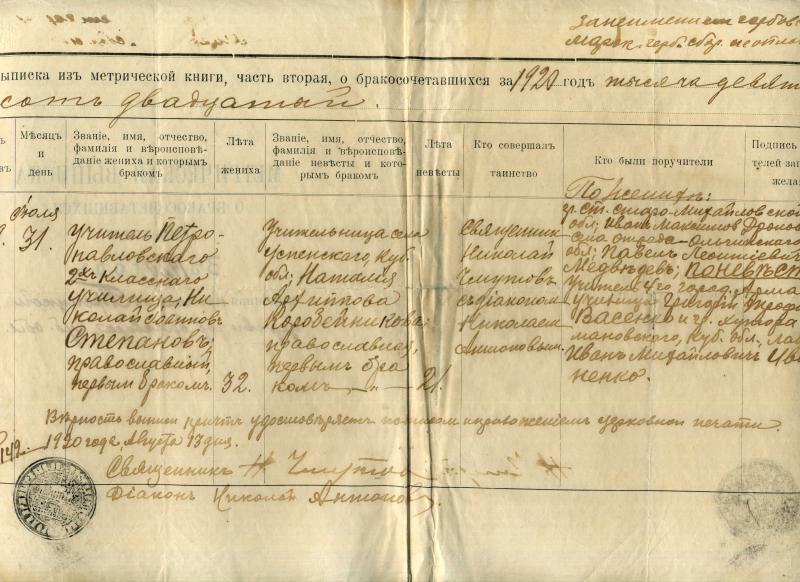 За неимением гербов
марок герб. сбор не опла
ыписка изъ метрической книги, часть вторая, о бракосочетавшихся за 1920 годъ тысяча девят
сотъ двадцатый.
Мѣсяцъ и день
Званіе, имя, отчество, фамилія и вѣроисповѣданіе жениха и которымъ бракомъ
Лѣта жениха
Званіе, имя, отчество, фамилія и вѣроисповѣданіе невѣсты и которымъ бракомъ
Лѣта невѣсты
Кто совершалъ таинство
Кто были поручители
Подпись
телей зап
жела
Июля
31.
Учитель Петро-
павловскаго
2хъ класснаго
училища, Ни
колай
Степановъ;
православный,
первым бракомъ.
32.
Учительница села
Успенскаго, Куб.
обл; Наталия
Архипова
Коробейникова;
православная,
первымъ бра
комъ
21.
Священник
Николай
Чмутовъ
съ диаконом
Николаем
Антоновым.
По женихъ:
ст. Старо-Михайловской
обл; Иванъ Максимов
села Отрада-Ольгинскаго
обл; Павелъ Леонтіевич
Медвѣдевъ; по невѣстѣ
Учителя 4го город. Арма
училища Григорій
Васенко и г. хутора
мановскаго, Куб. обл,
Иванъ Михайлович Ива
ненко.
Вѣрность выписи причтъ удостовѣряетъ подписом и приложеніемъ церковной печати.
1920 года Августа 13 дня.
Священникъ Н. Чмутов
Діаконъ Николай Антонов.